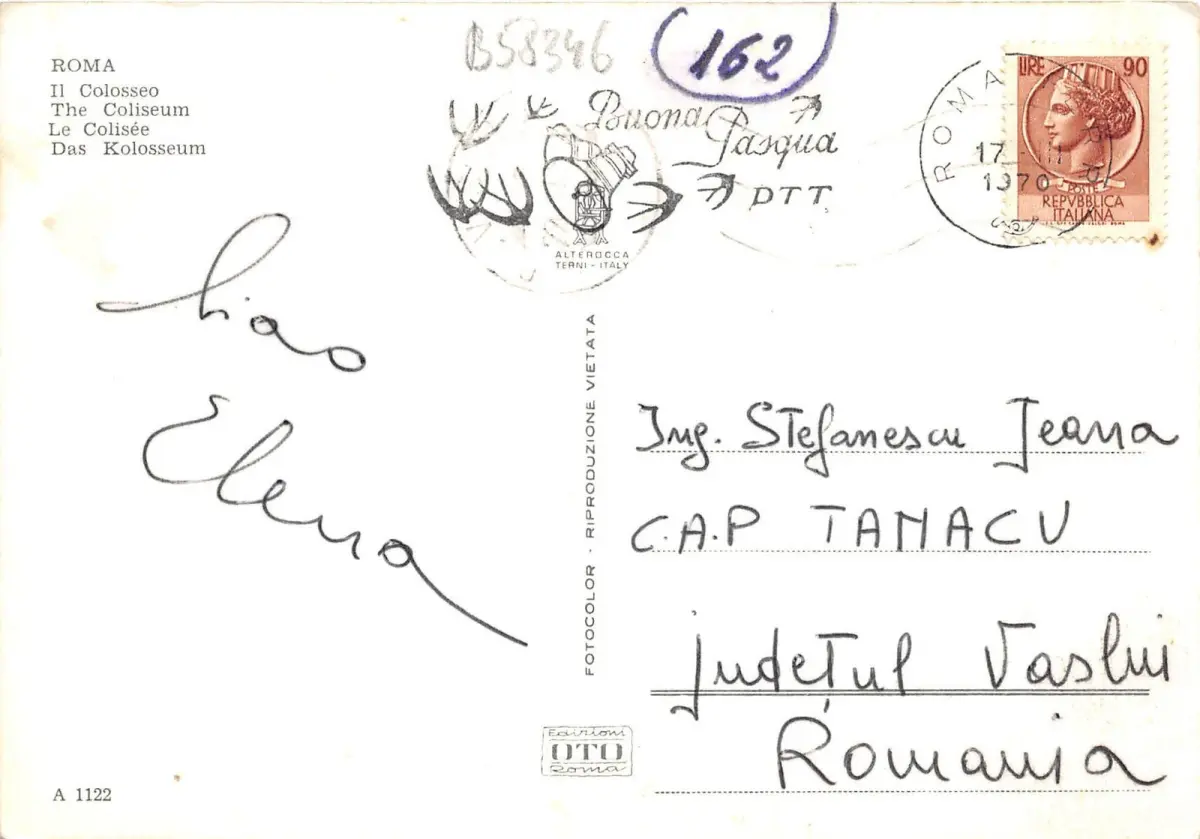 B58346
(162)
ROMA
Il Colosseo
The Coliseum
Le Colisée
Das Kolosseum
Buona Pasqua
PTT
ALTEROCCA
TERNI - ITALY
ROMA
17 III
1970
LIRE 90
POSTE
REPVBBLICA
ITALIANA
Ciao
Elena
FOTOCOLOR - RIPRODUZIONE VIETATA
Ing. Stefanescu Jeana
C.A.P TANACU
Județul Vaslui
Romania
Edizioni
OTO
Roma
A 1122